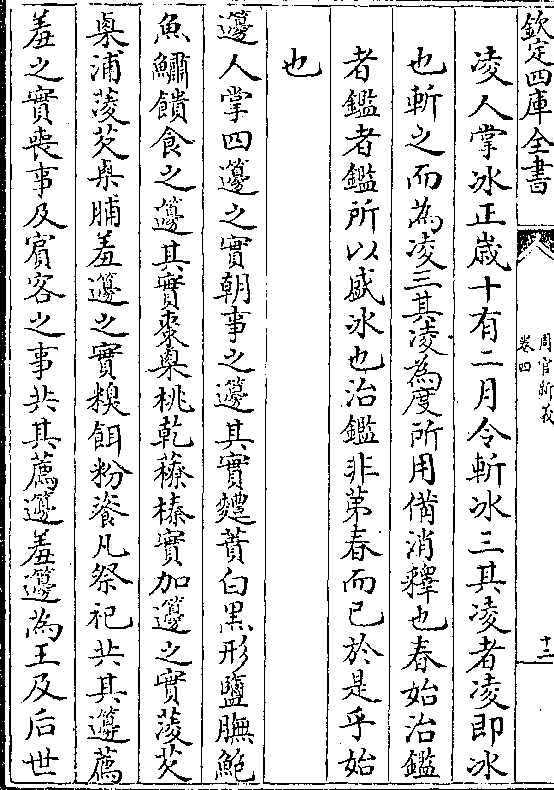 欽定四庫全書
周官新義
卷四
十二
凌人掌冰正歲十有二月令斬冰三其凌者凌即冰
也斬之而為凌三其凌為度所用備消釋也春始治鑑
者鑑者鑑所以盛冰也治鑑非第春而已於是乎始
也
籩人掌四籩之實朝事之籩其實麷蕡白黑形鹽膴鮑
魚鱐饋食之籩其實棗㮚桃乾䕩榛實加籩之實菱芡
㮚浦菱芡㮚脯羞籩之實糗餌粉餈凡祭祀共其籩薦
羞之實喪事及賓客之事共其薦籩羞籩為王及后世